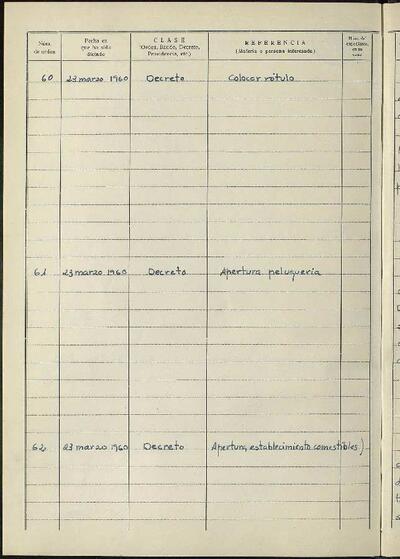 Núm. de orden
Fecha en que ha sido dictado
CLASE
(Orden, Bando, Decreto, Providencia, etc.)
REFERENCIA
(Materia o persona interesada)
60 23 marzo 1960 Decreto Colocar rótulo
61 23 marzo 1960 Decreto Apertura peluquería
62 23 marzo 1960 Decreto Apertura establecimiento comestibles)